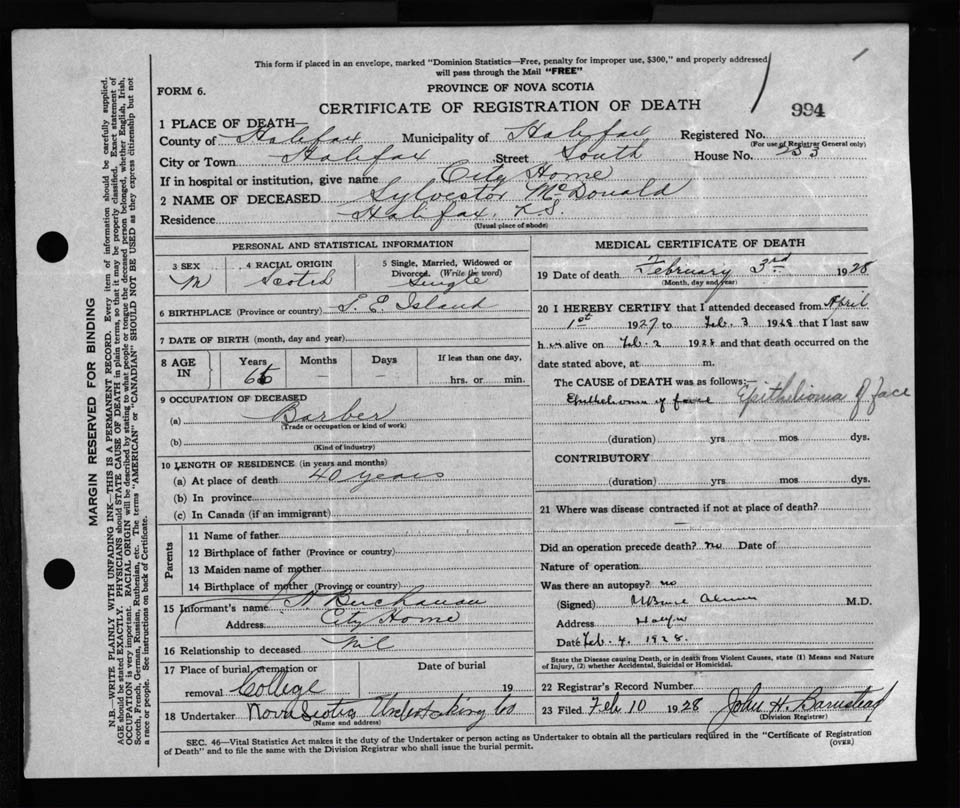 This form if placed in an envelope, marked "Dominion Statistics—Free, penalty for improper use, $300," and properly addressed
will pass through the Mail "FREE"
FORM 6.
PROVINCE OF NOVA SCOTIA
CERTIFICATE OF REGISTRATION OF DEATH
994
1 PLACE OF DEATH—
County of Halifax Municipality of Halifax Registered No.
(For use of Registrar General only)
City or Town Halifax Street South House No.
If in hospital or institution, give name City Home
2 NAME OF DECEASED Sylvestor McDonald
Residence Halifax, N.S.
(Usual place of abode)
PERSONAL AND STATISTICAL INFORMATION
3 SEX M
4 RACIAL ORIGIN Scotch
5 Single, Married, Widowed or Divorced. (Write the word) Single
6 BIRTHPLACE (Province or country) P. E. Island
7 DATE OF BIRTH (month, day and year)
8 AGE IN Years Months Days If less than one day,
hrs. or min.
9 OCCUPATION OF DECEASED
(a) Barber
(Trade or occupation or kind of work)
(b)
(Kind of industry)
10 LENGTH OF RESIDENCE (in years and months)
(a) At place of death 40 years
(b) In province
(c) In Canada (if an immigrant)
Parents
11 Name of father
12 Birthplace of father (Province or country)
13 Maiden name of mother
14 Birthplace of mother (Province or country)
15 Informant's name H Buchanan
Address City Home
16 Relationship to deceased Nil
17 Place of burial, cremation or removal College Date of burial 19
18 Undertaker Nova Scotia Undertaking Co
(Name and address)
MEDICAL CERTIFICATE OF DEATH
19 Date of death February 3rd 1928
(Month, day and year)
20 I HEREBY CERTIFY that I attended deceased from April
1st 1927 to Feb. 3 1928 that I last saw
him alive on Feb. 2 1928 and that death occurred on the
date stated above, at m.
The CAUSE of DEATH was as follows:—
Epithelioma of face Epithelioma of face
(duration) yrs mos dys.
CONTRIBUTORY
(duration) yrs. mos. dys.
21 Where was disease contracted if not at place of death?
—
Did an operation precede death? no Date of
Nature of operation
Was there an autopsy? no
(Signed) M.D.
Address Halifax
Date Feb. 4. 1928.
State the Disease causing Death, or in death from Violent Causes, state (1) Means and Nature
of Injury, (2) whether Accidental, Suicidal or Homicidal.
22 Registrar's Record Number
23 Filed Feb 10 1928 John H. Barnstead
(Division Registrar)
SEC. 46—Vital Statistics Act makes it the duty of the Undertaker or person acting as Undertaker to obtain all the particulars required in the "Certificate of Registration
of Death" and to file the same with the Division Registrar who shall issue the burial permit.
(OVER)
MARGIN RESERVED FOR BINDING
N.B.—WRITE PLAINLY WITH UNFADING INK—THIS IS A PERMANENT RECORD. Every item of information should be carefully supplied.
AGE should be stated EXACTLY. PHYSICIANS should STATE CAUSE OF DEATH in plain terms, so that it may be properly classified. Exact statement of
OCCUPATION is very important. RACIAL ORIGIN will be described by stating to what people or tongue the deceased person belonged, whether English, Irish,
Scotch, French, German, Russian, Ruthenian, etc. The terms "AMERICAN" or "CANADIAN" SHOULD NOT BE USED as they express citizenship but not
a race or people. See instructions on back of Certificate.